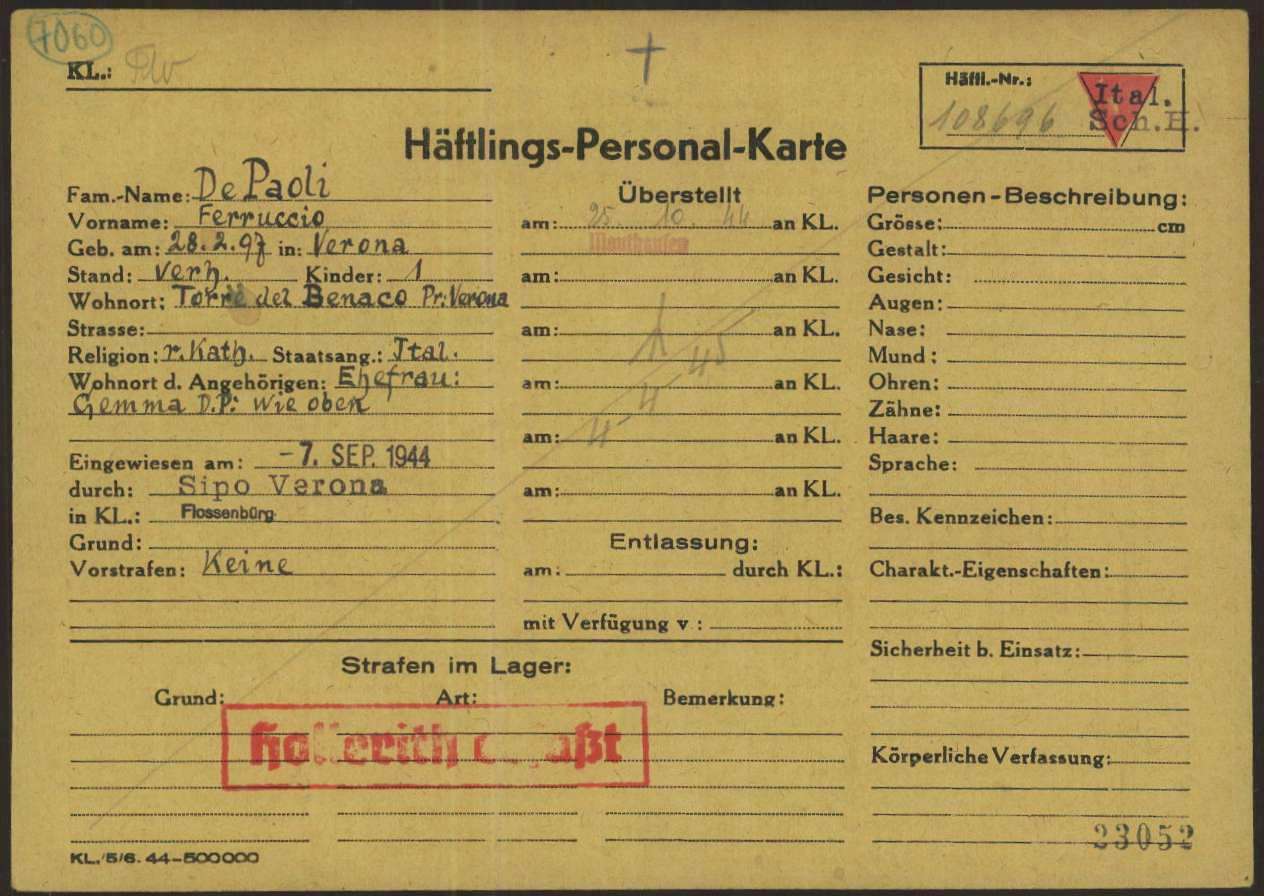 7060
KL.:
Häftl.-Nr.:
108696
Ital.
Sch.H.
Häftlings-Personal-Karte
Fam.-Name: De Paoli
Vorname: Ferruccio
Geb. am: 28.2.97 in: Verona
Stand: verh. Kinder: 1
Wohnort: Torre del Benaco Pr: Verona
Strasse:
Religion: r. Kath. Staatsang.: Ital.
Wohnort d. Angehörigen: Ehefrau:
Gemma D.P: wie oben
Eingewiesen am: -7. SEP. 1944
durch: Sipo Verona
in KL.: Flossenbürg
Grund:
Vorstrafen: Keine
Überstellt
am: 25. 10. 44 an KL.
Mauthausen
am: an KL.
am: an KL.
45
am: an KL.
4
am: an KL.
am: an KL.
Entlassung:
am: durch KL.:
mit Verfügung v :
Personen-Beschreibung:
Grösse: cm
Gestalt:
Gesicht:
Augen:
Nase:
Mund :
Ohren:
Zähne:
Haare:
Sprache:
Bes. Kennzeichen:
Charakt.-Eigenschaften:
Sicherheit b. Einsatz:
Körperliche Verfassung:
Strafen im Lager:
Grund: Art: Bemerkung:
Hollerith erfaßt
23052
KL./5/6. 44-500000